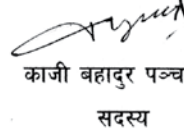 काजी बहादुर पञ्च
सदस्य